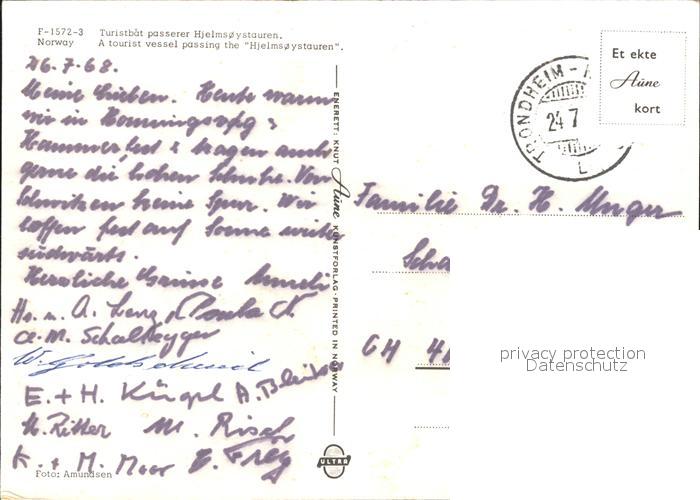 F-1572-3 Turistbåt passerer Hjelmsøystauren.
Norway A tourist vessel passing the "Hjelmsøystauren".
26.7.68.
Meine Lieben. Heute waren
wir in Honningsvåg &
Hammerfest & tragen auch
gerne die hohen Schuhe. Von
Schwitzen keine Spur. Wir
hoffen fest auf Sonne weiter
südwärts.
Herzliche Grüsse
Hs. u. A. Lenz, Paula
W. Goldschmid
E. + H. Küngl A.
M. Ritter M. Risch
K. + M. Moor E. Frey
Foto: Amundsen
ENERETT: KNUT Aüne KUNSTFORLAG · PRINTED IN NORWAY
ULTRA
Et ekte
Aüne
kort
TRONDHEIM -
24 7
L
Familie Dr. H. Unger
CH 41
privacy protection
Datenschutz